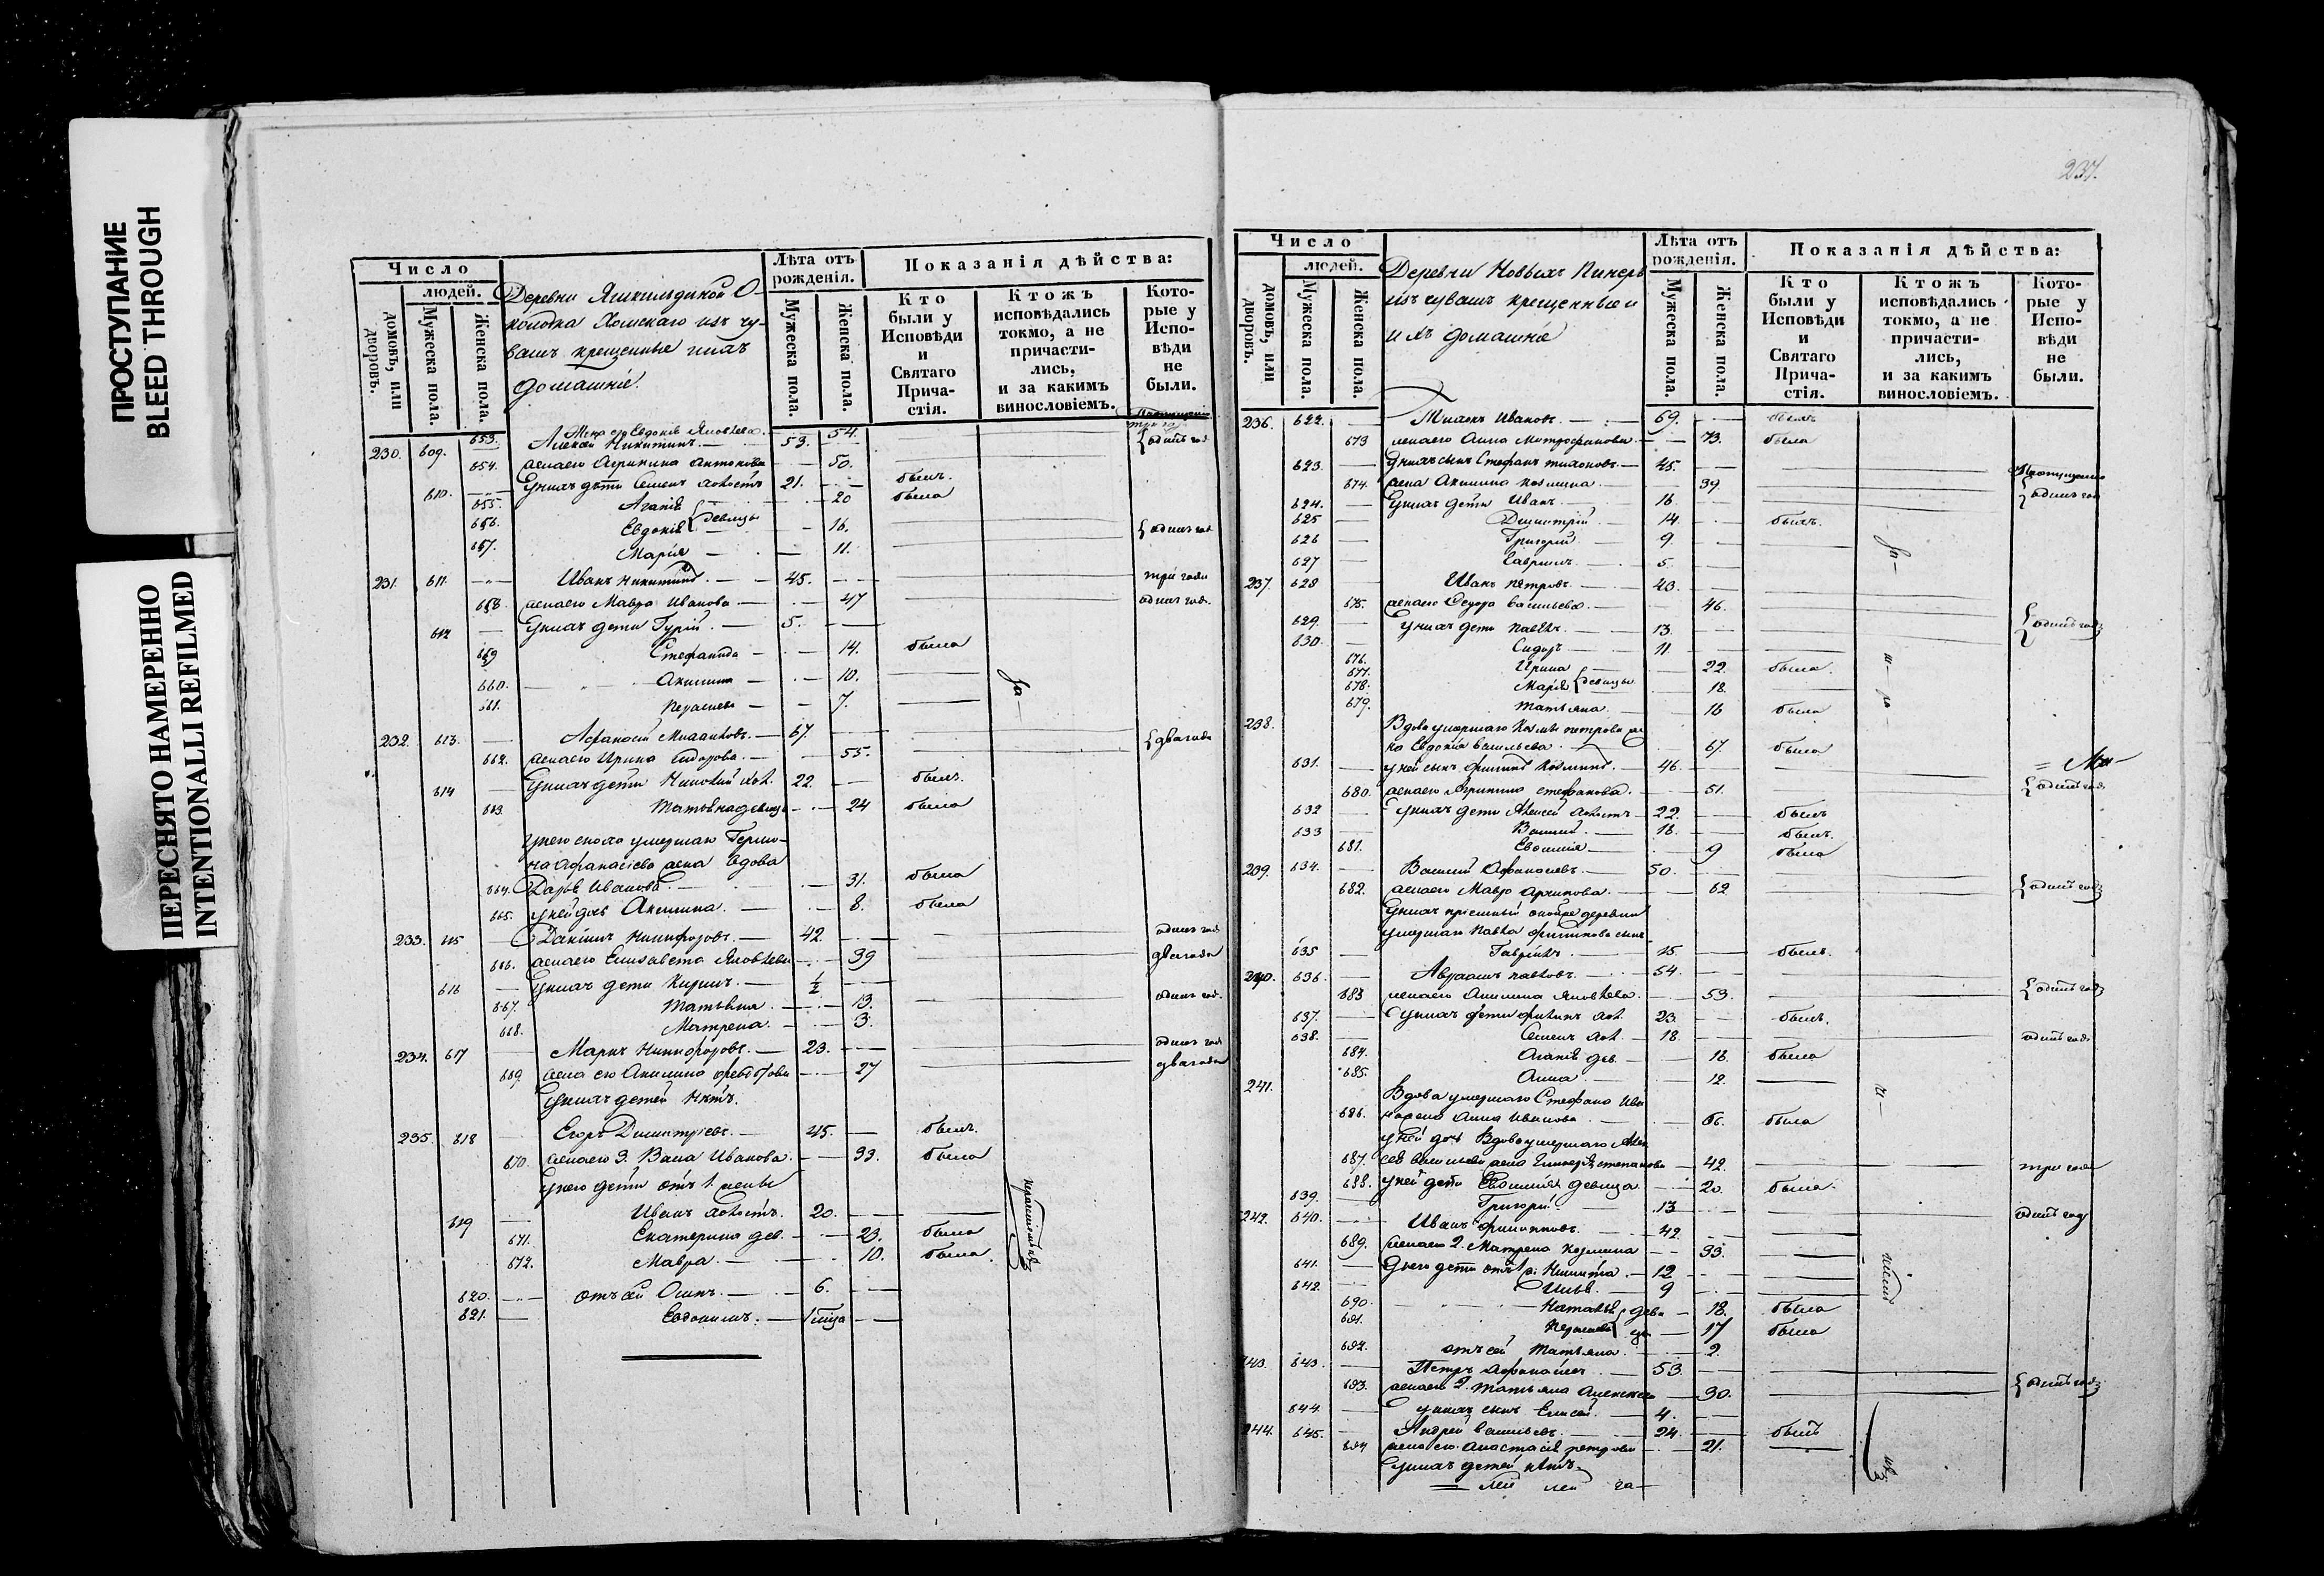 ПРОСТУПАНИЕ
BLEED THROUGH
ПЕРЕСНЯТО НАМЕРЕННО
INTENTIONALLI REFILMED
Число
людей.
домовъ, или дворовъ.
Мужеска пола.
Женска пола.
Деревни
околодка из чу-
вашъ крещенные и ихъ
домашніе.
Лѣта отъ рожденія.
Мужеска пола.
Женска пола.
Показанія дѣйства:
Кто были у Исповѣди и Святаго Прича-стія.
Ктожъ исповѣдались токмо, а не причасти-лись, и за какимъ винословіемъ.
Кото-рые у Испо-вѣди не были.
653. Жена его Евдокія Яковлева. 54.
230. 609. Алексѣй Никитинъ. 53. одинъ годъ
654. жена его Агрипина Антонова 50.
610. У нихъ дѣти Семенъ холостъ 21. былъ.
655. Агафія 20 была
656. Евдокія девицы 16. одинъ годъ
657. Марія 11.
231. 611. Иванъ Никитинъ. 45. три года
658. жена его Мавра Иванова 47 одинъ годъ.
612 У нихъ дети Гурій. 5.
659 Стефанида 14. была
660. Акилина 10.
661. 7.
232. 613. Афанасій 67. два года
662. жена его Ирина Сидорова. 55.
614 У нихъ дети хол. 22. былъ.
663. Татьяна девица 24 была
у него снохо умершаго
на Афанасіева жена вдова
664. Дарья Иванова. 31. была
665. у ней дочь Акилина. 8. была
233. 615 Никифоровъ. 42. одинъ годъ
666. жена его Елисавета Яковлева 39 два года
616 У нихъ дети 1/2
667. Татьяна 13. одинъ год.
668. Матрена. 3.
234. 617 Маркъ Никифоровъ. 23. одинъ годъ
669. жена его Акилина 27 два года
У нихъ детей нѣтъ.
235. 618 Егоръ Димитріевъ. 45. былъ.
670. жена его Иванова. 33. была
У него дѣти отъ 1. жены
619 Иванъ холостъ. 20.
671. Екатерина дев. 23. была
672. Мавра. 10. была
620. отъ сей Осипъ. 6.
621. Евдокимъ. 1 гица
237.
Число
людей.
домовъ, или дворовъ.
Мужеска пола.
Женска пола.
Деревни Новыхъ
изъ чувашъ крещенные и
ихъ домашніе
Лѣта отъ рожденія.
Мужеска пола.
Женска пола.
Показанія дѣйства:
Кто были у Исповѣди и Святаго Прича-стія.
Ктожъ исповѣдались токмо, а не причасти-лись, и за какимъ винословіемъ.
Кото-рые у Испо-вѣди не были.
236. 622. Тихонъ Ивановъ. 69. былъ
673 жена его Анна Митрофанова. 73. была
623. У нихъ сынъ Стефанъ Тихоновъ. 45.
674. жена Акилина Козмина. 39. одинъ годъ
624. У нихъ дети Иванъ. 16.
625 Димитрій 14. былъ.
626 Григорій 9.
627 Гаврилъ. 5.
237. 628 Иванъ Петровъ. 43.
675. жена его Федора Васильева. 46.
629. У нихъ дети Павелъ. 13. одинъ годъ
630. Сидоръ 11.
676. Ирина 22. была.
677.
678. Марія девицы 18.
679. Татьяна 16 была
238. Вдова умершаго Козмы Петрова же
на Евдокія Васильева. 67. была
631. у ней сынъ Козминъ. 46.
680. жена его Агрипина Стефанова. 51. одинъ годъ
632 У нихъ дети Алексей холостъ 22. былъ
633 16. былъ.
681. Евфимія 9 была
239. 634. Афанасьевъ. 50.
682. жена его Мавра Архипова. 62 одинъ годъ
деревни
умершаго Павла сынъ
635 Гаврилъ. 15. былъ.
240. 636. Абрамъ Павловъ. 54.
683 жена его Акилина Яковлева. 53. одинъ годъ
637. У нихъ дети хол. 23. былъ.
638. Семенъ хол. 18. одинъ годъ
684. Агафія дев. 16. была
685. Анна 12.
241. Вдова умершаго Стефана Ива
686. нова жена Анна Иванова 66. была
у ней дочь вдова умершаго Алек
687. сея Васильева жена Степанова 42. три года
688. у ней дети Евфимія девица 20. была.
639. Григорій. 13
242. 640. Иванъ 42. одинъ годъ
689. жена его 2. Матрена Козмина 33.
641. У него дети отъ 1й: Никита. 12
642. Илья. 9
690. Наталья деви 18. была
691. цы 17 была
692. отъ сей Татьяна. 2.
243. 643. Петръ Афанасьевъ 53.
693. жена его 2. Татьяна Алексеева 30. одинъ годъ
644. У нихъ сынъ Елисей. 4.
244. 645. Андрей Васильевъ. 24. былъ
694 жена его Анастасія Петрова 21.
У нихъ детей нѣтъ.